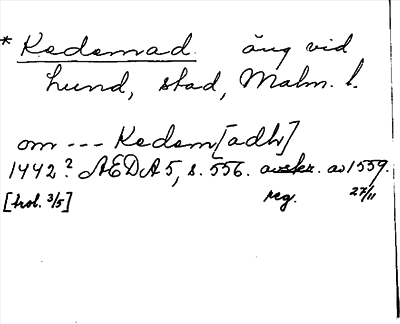 * Kedemad äng vid
Lund, stad, Malm. l.
om --- Kedem[adh]
1442? AEDA 5, s. 556. avskr. av 1559.
[trol. 3/5] reg. 27/11